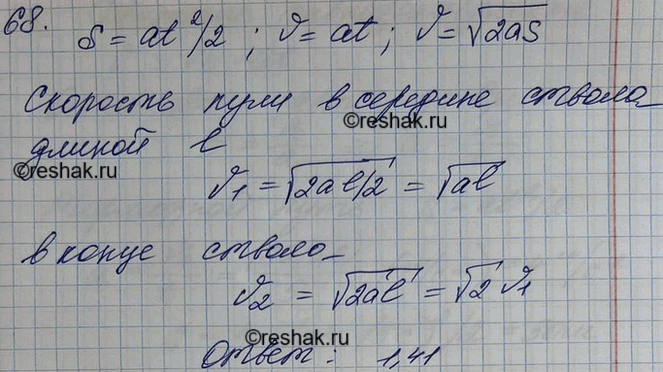 68. S = at²/2 ; υ = at ; υ = √2aS
Скорость пули в середине ствола
©reshak.ru
длиной l
©reshak.ru
υ₁ = √2al/2 = √al
в конце ствола
υ₂ = √2al = √2 υ₁
©reshak.ru
Ответ: 1,41